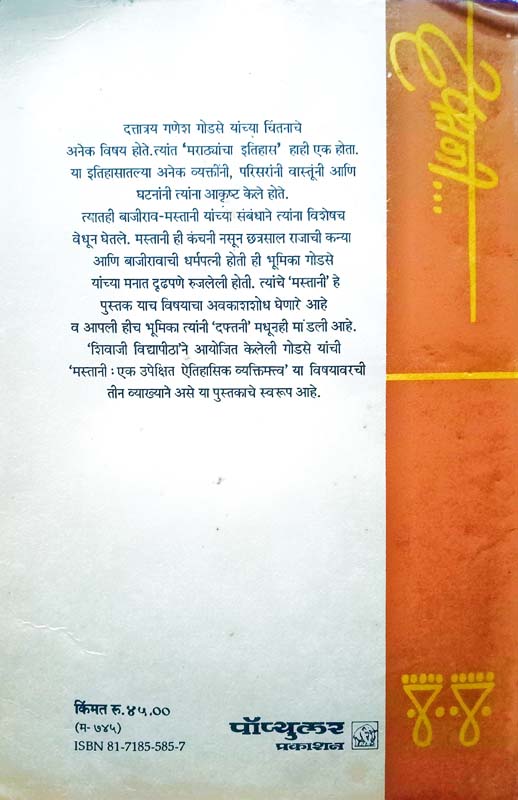 दफ्तनी...
दत्तात्रय गणेश गोडसे यांच्या चिंतनाचे
अनेक विषय होते.त्यांत ‘मराठ्यांचा इतिहास’ हाही एक होता.
या इतिहासातल्या अनेक व्यक्तींनी, परिसरांनी वास्तूंनी आणि
घटनांनी त्यांना आकृष्ट केले होते.
त्यातही बाजीराव-मस्तानी यांच्या संबंधाने त्यांना विशेषच
वेधून घेतले. मस्तानी ही कंचनी नसून छत्रसाल राजाची कन्या
आणि बाजीरावाची धर्मपत्नी होती ही भूमिका गोडसे
यांच्या मनात दृढपणे रुजलेली होती. त्यांचे ‘मस्तानी’ हे
पुस्तक याच विषयाचा अवकाशशोध घेणारे आहे
व आपली हीच भूमिका त्यांनी ‘दफ्तनी’ मधूनही मांडली आहे.
‘शिवाजी विद्यापीठा’ने आयोजित केलेली गोडसे यांची
‘मस्तानी : एक उपेक्षित ऐतिहासिक व्यक्तिमत्त्व’ या विषयावरची
तीन व्याख्याने असे या पुस्तकाचे स्वरूप आहे.
किंमत रु.४५.००
(म- ७४५)
ISBN 81-7185-585-7
पॉप्युलर
प्रकाशन